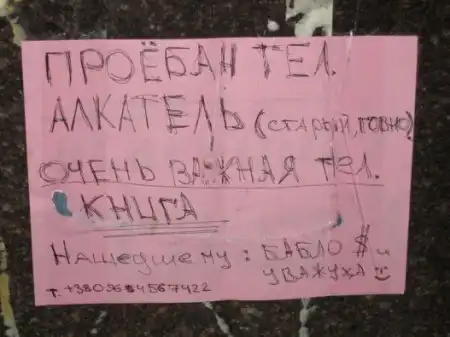 ПРОЁБАН ТЕЛ.
АЛКАТЕЛЬ (СТАРЫЙ, ГОВНО)
ОЧЕНЬ ВАЖНАЯ ТЕЛ.
КНИГА
Нашедшему: БАБЛО $ и
УВАЖУХА
т. +380964567422